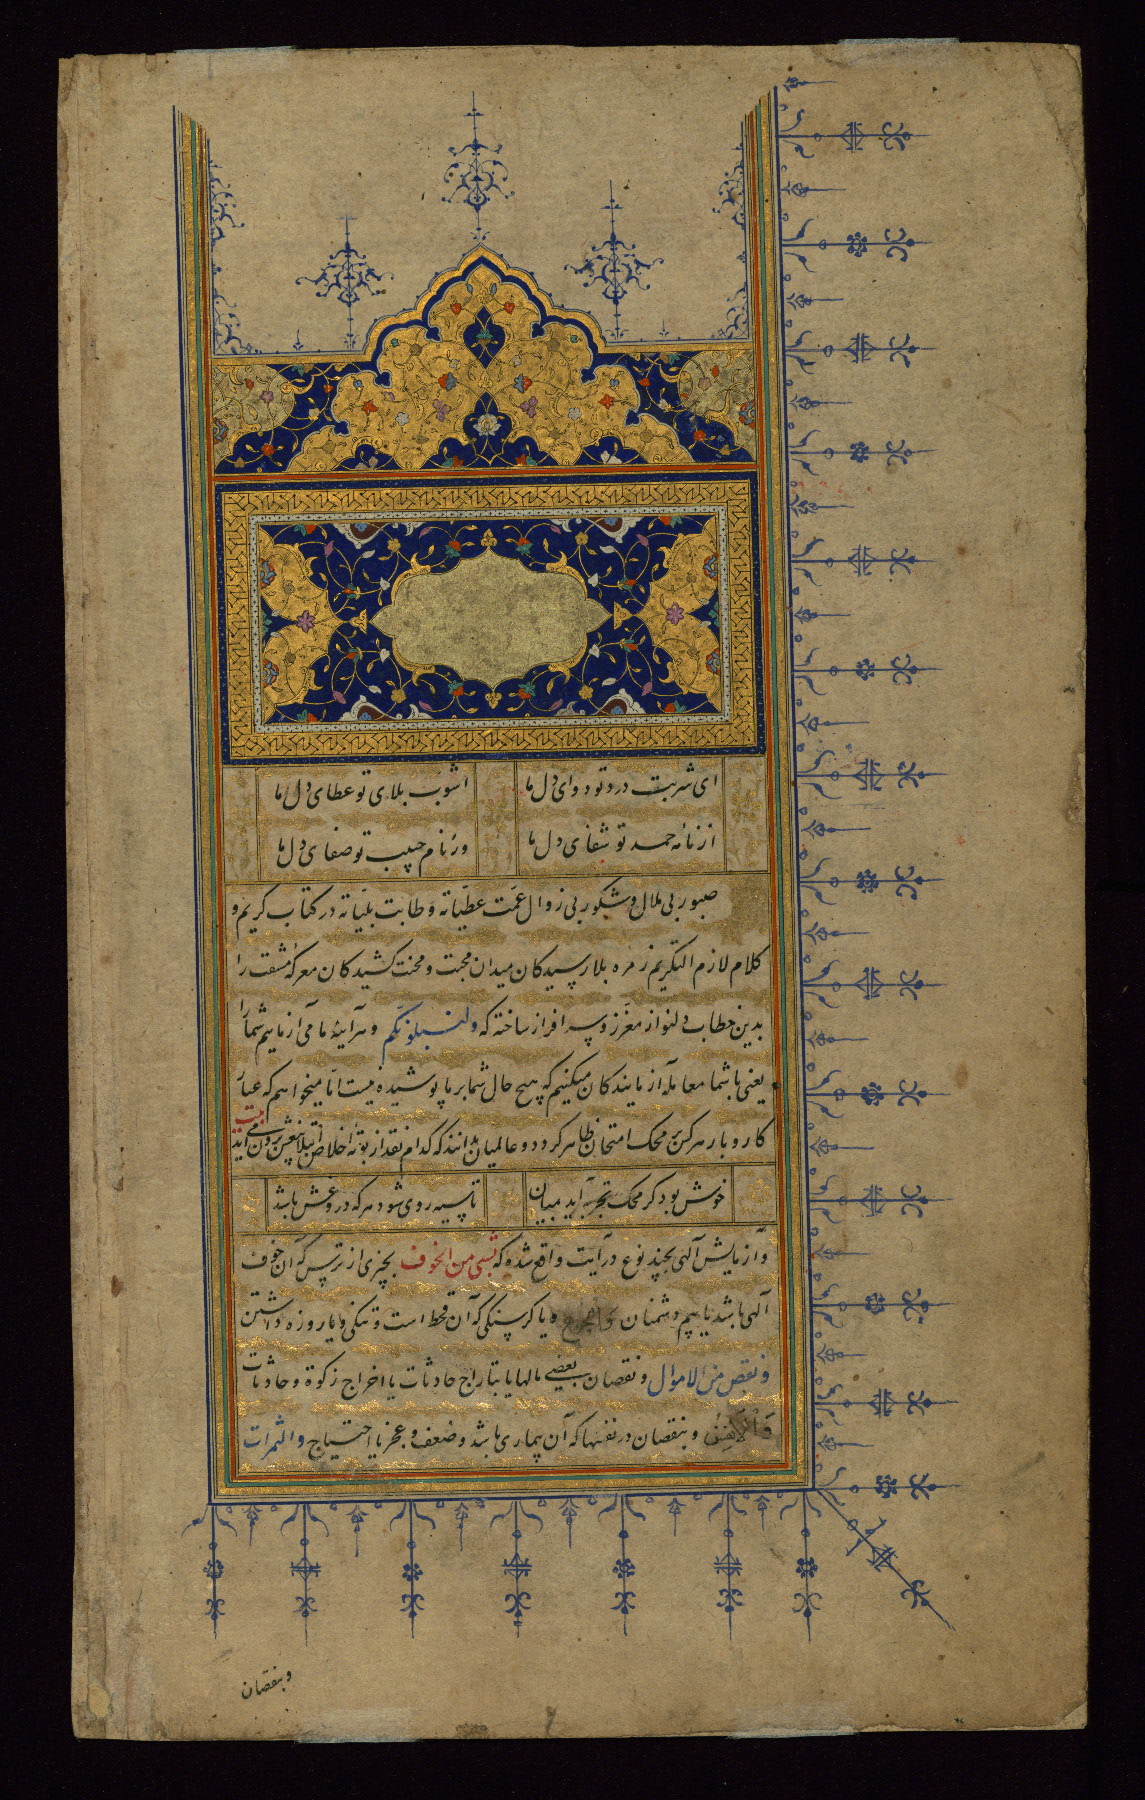 ای شربت درد تو دوای دل ما اشوب بلای تو عطای دل ما
از نامه حمد تو شفای دل ما وز نام حبیب تو صفای دل ما
صبور بی ملال و شکور بی زوال عمت عطیاته و طابت بلیاته در کتاب کریم و
کلام لازم التکریم زمره بلا رسیدکان میدان محبت و محنت کشیدکان معرکهٔ مشقت را
بدین خطاب دلنواز معزز و سرافراز ساخته که ولنبلونکم و هر آینهٔ ما می آزماییم شما را
یعنی با شما معامله آزمایندکان میکنیم که هیچ حال شما بر ما پوشیده نیست اما میخواهیم که عیار
کار و بار هر کس بر محک امتحان ظاهر کردد و عالمیان بدانند که کدام نقد از بوتهٔ اخلاص ابتلا بیغش بیرون می آید
بیت
خوش بود کر محک تجربه آید بمیان تا سیه روی شود هر که درو غش باشد
و آزمایش آلهی بچند نوع در آیت واقع شده که بشیی من الخوف بچیزی از ترس که آن خوف
آلهی باشد یا بیم دشمنان والجوع و یا کرسنکی که آن قحط است و تنکی و یا روزه داشتن
و نقص من الاموال و نقصان بعضی مالها یا بتاراج حادثات یا اخراج زکوة و حادثات
والانفس و بنقصان در نفسها که آن بیماری باشد و ضعف و عجز یا احتیاج والثمرات
و بنقصان